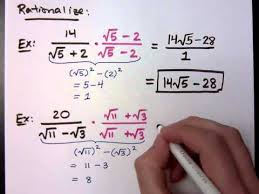 Rationalize:
Ex: 14/(√5 + 2) · (√5 − 2)/(√5 − 2) = (14√5 − 28)/1
(√5)² − (2)²
= 5 − 4
= 1
14√5 − 28
Ex: 20/(√11 − √3) · (√11 + √3)/(√11 + √3) =
(√11)² − (√3)²
= 11 − 3
= 8